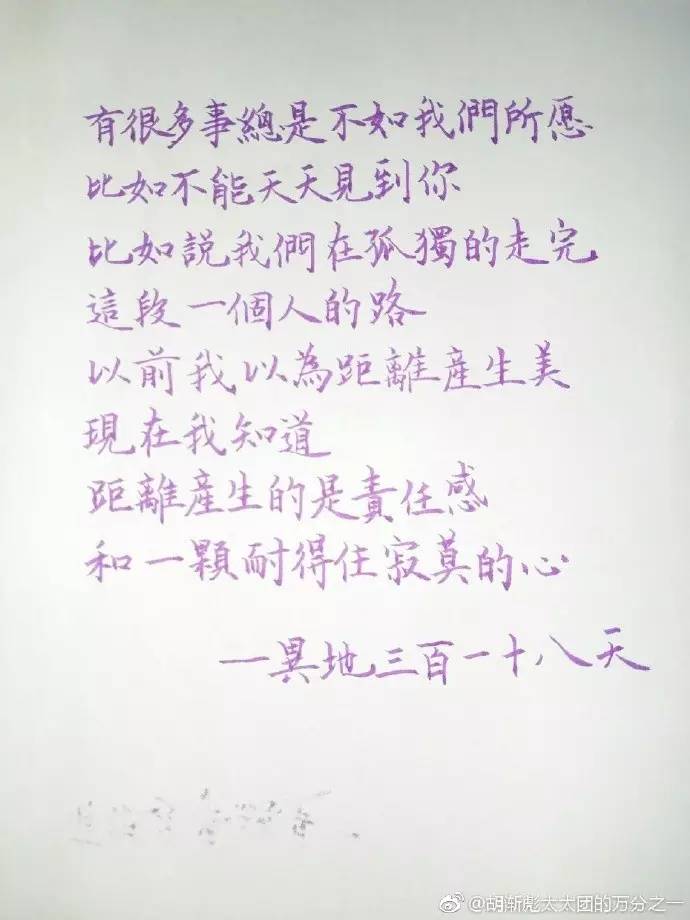 有很多事總是不如我們所愿
比如不能天天見到你
比如說我們在孤獨的走完
這段一個人的路
以前我以為距離産生美
現在我知道
距離産生的是責任感
和一顆耐得住寂莫的心
—異地三百一十八天
@胡斩彪太太团的万分之一